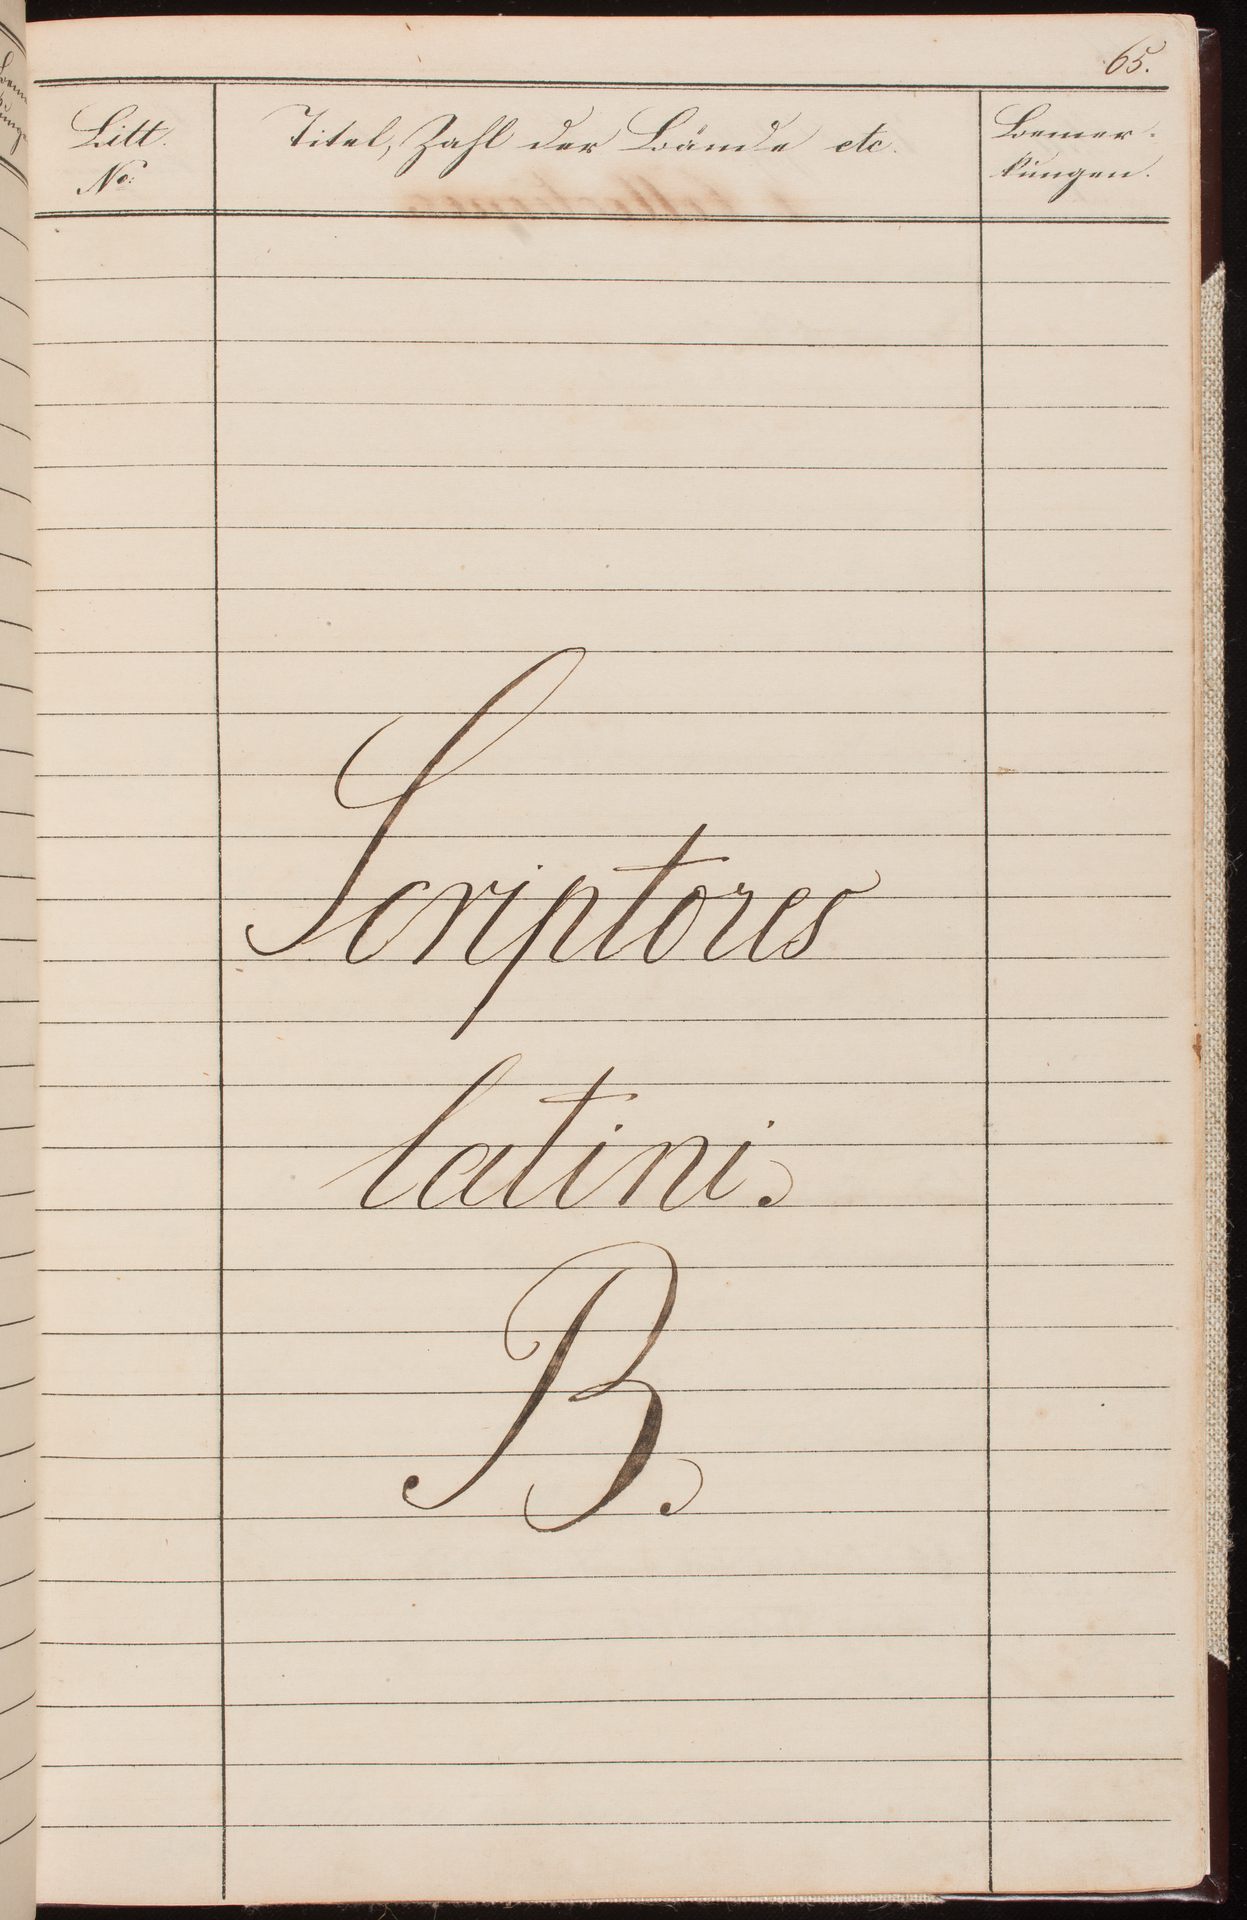 65.
Litt.
No:
Titel, Zahl der Bände etc.
Bemer-
kungen.
Scriptores
latini.
B.